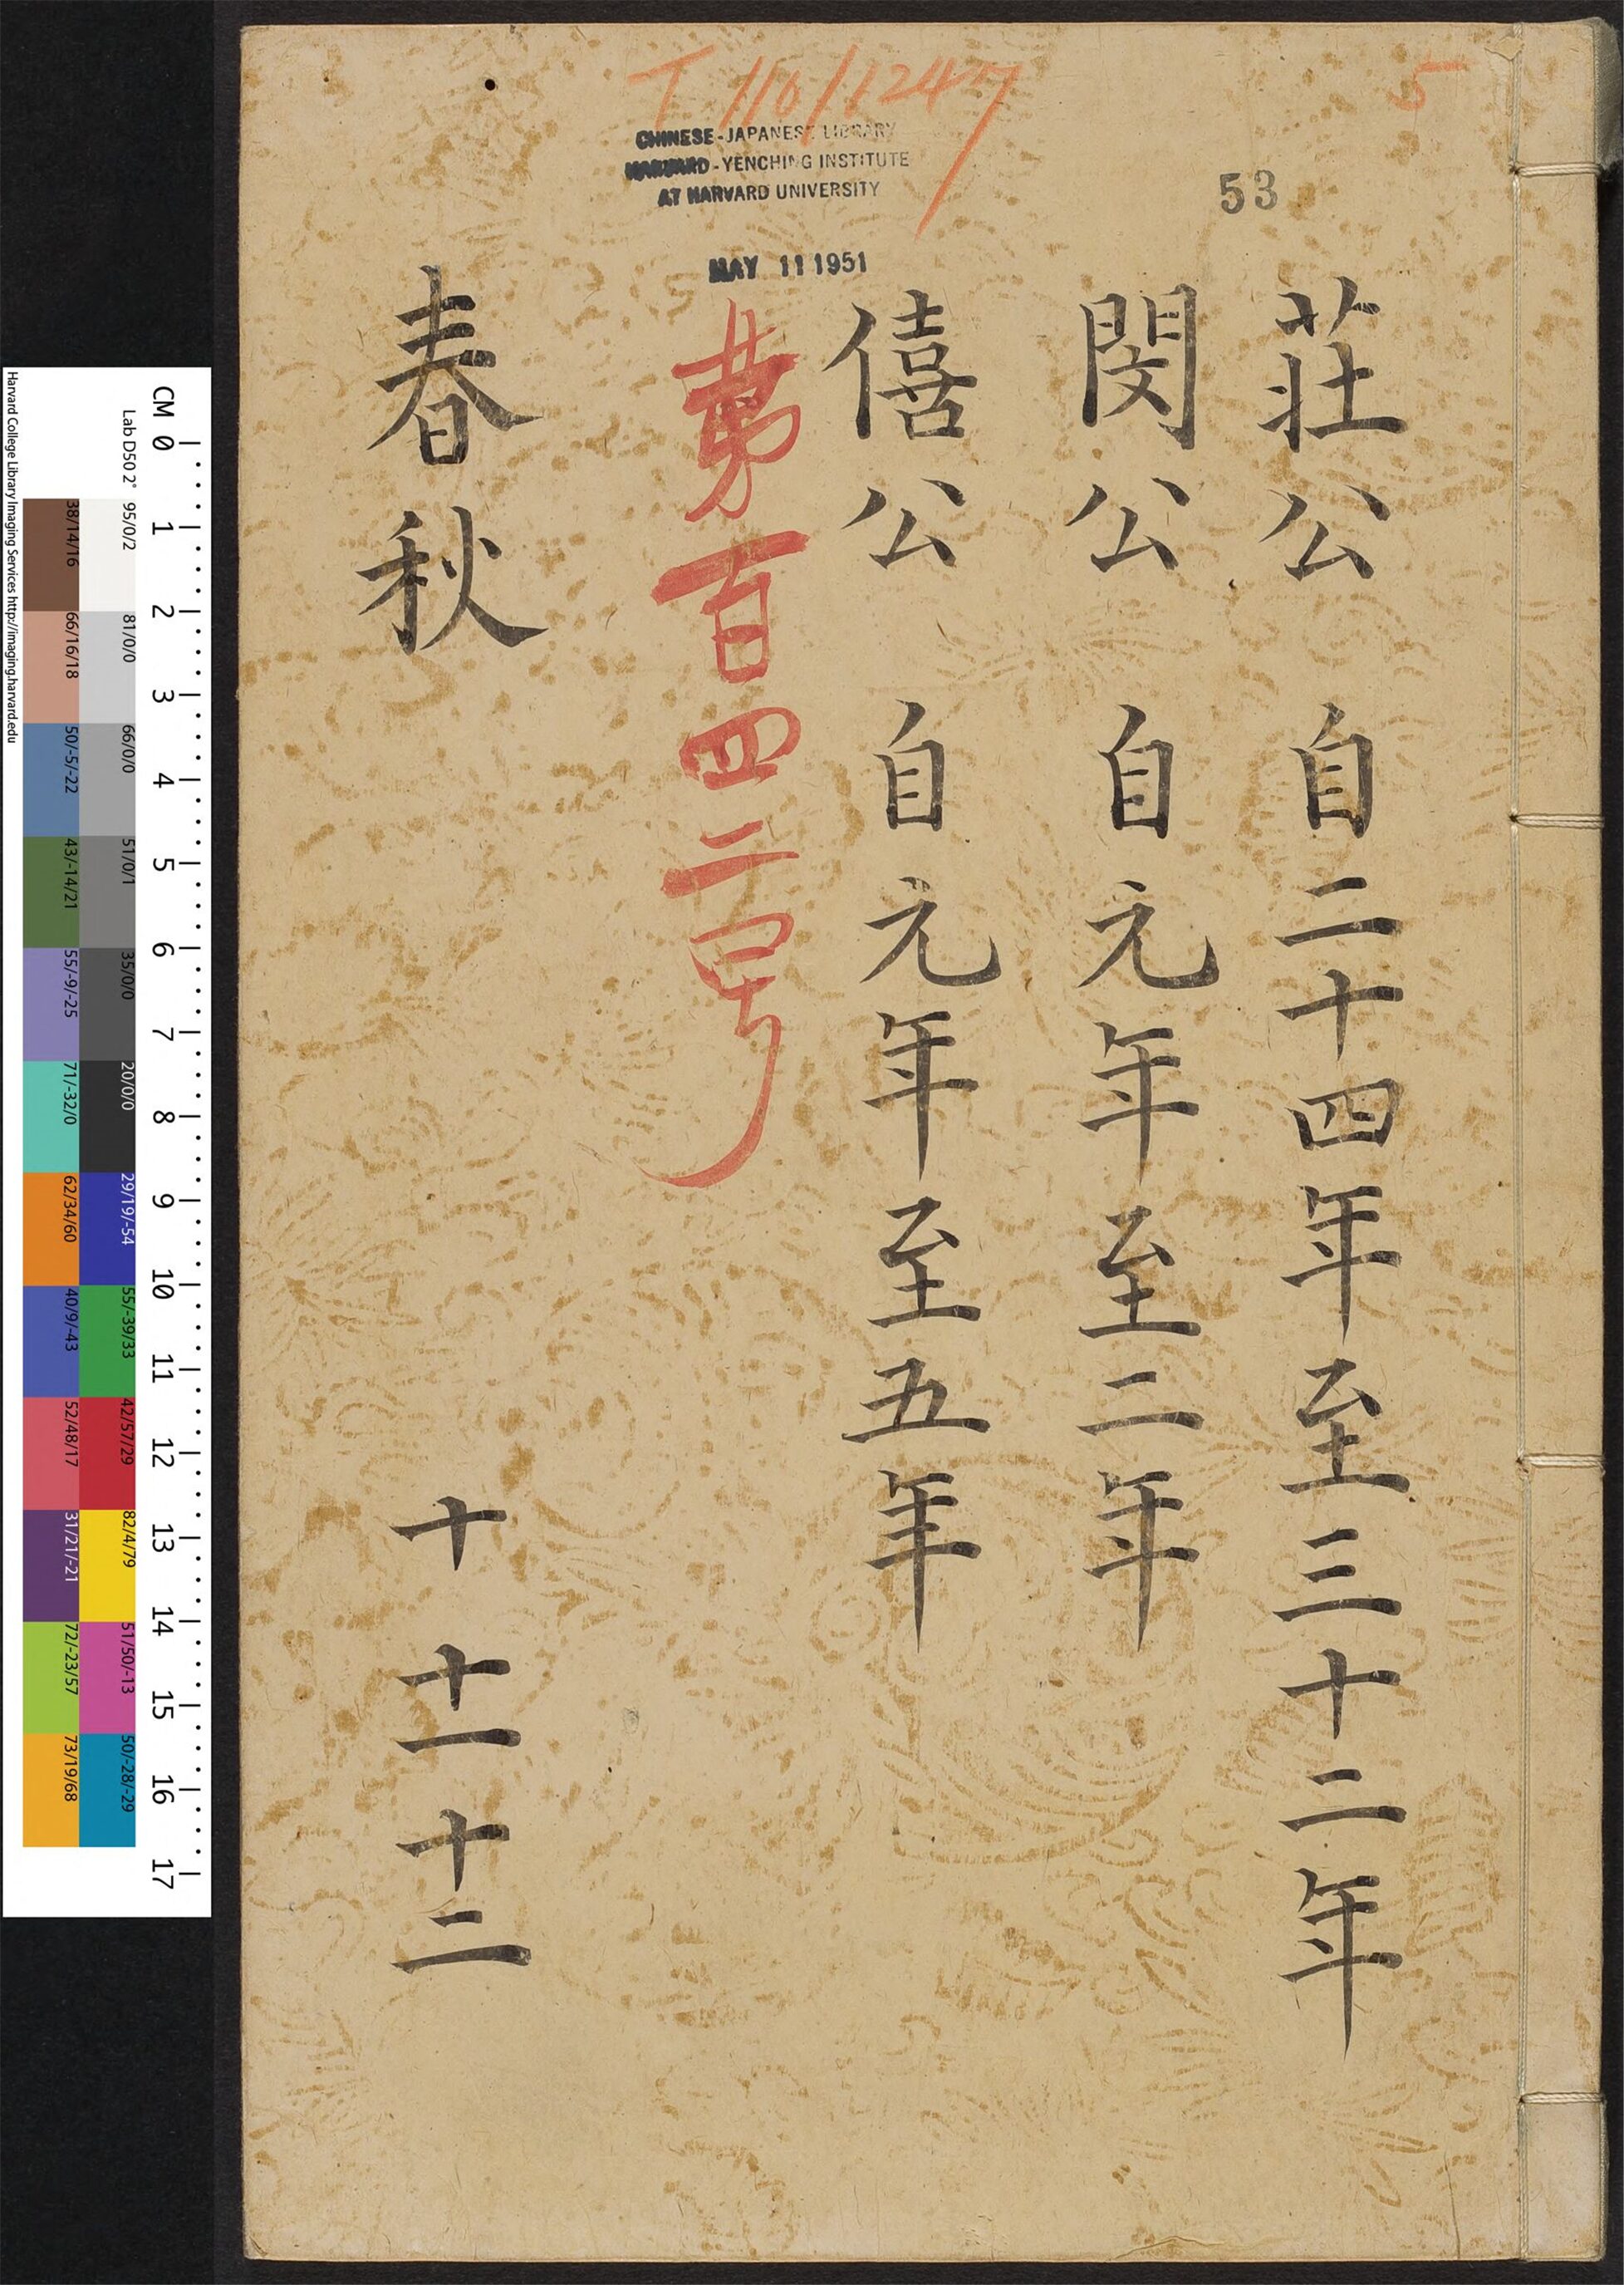 T 110/1247
5
CHINESE-JAPANESE LIBRARY
HARVARD-YENCHING INSTITUTE
AT HARVARD UNIVERSITY
MAY 11 1951
53
莊公 自二十四年至三十二年
閔公 自元年至二年
僖公 自元年至五年
第百四二号
春秋 十 十一 十二
CM 0 1 2 3 4 5 6 7 8 9 10 11 12 13 14 15 16 17
Lab D50 2° 95/0/2 81/0/0 66/0/0 51/0/1 35/0/0 20/0/0 29/19/-54 55/-39/33 42/57/29 82/4/79 51/50/-13 50/-28/-29
38/14/16 66/16/18 50/-5/-22 43/-14/21 55/-9/-25 71/-32/0 62/34/60 40/9/-43 52/48/17 31/21/-21 72/-23/57 73/19/68
Harvard College Library Imaging Services http://imaging.harvard.edu